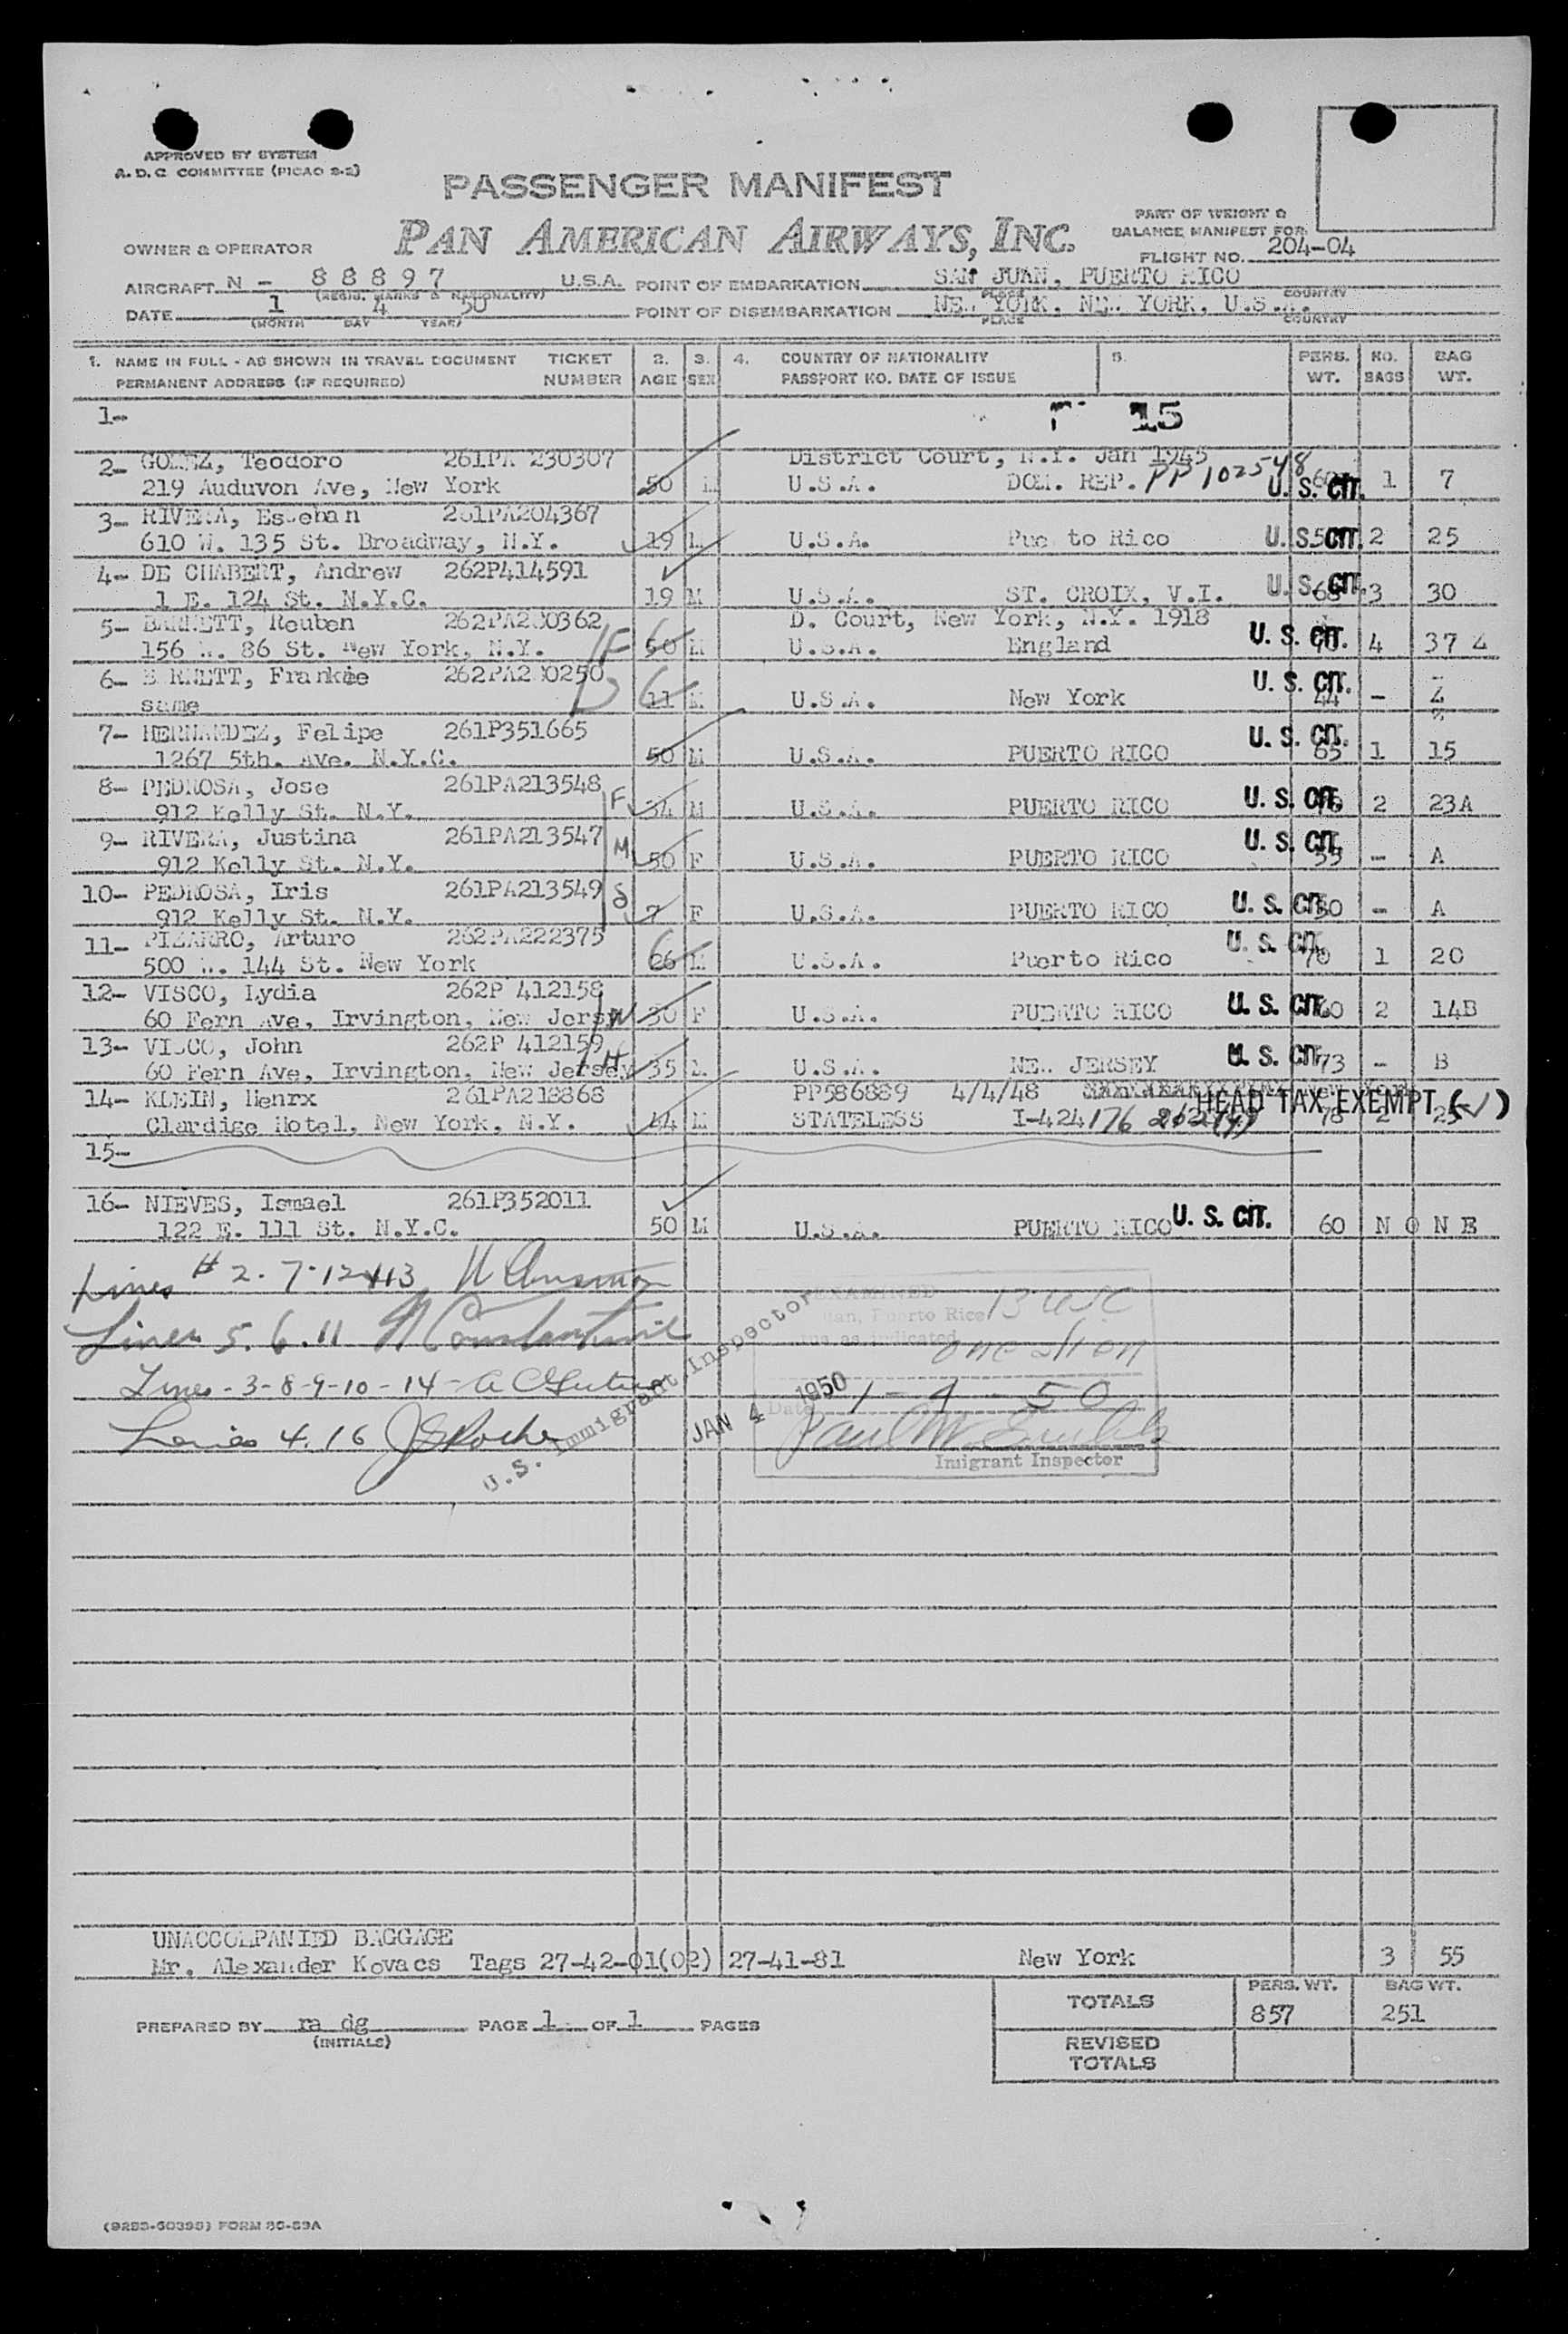 APPROVED BY SYSTEM
A. D. C COMMITTEE (PICAO 2-2)
PASSENGER MANIFEST
PAN AMERICAN AIRWAYS, INC.
PART OF WEIGHT &
BALANCE MANIFEST FOR
OWNER & OPERATOR
FLIGHT NO. 204-04
AIRCRAFT N - 88897 U.S.A. POINT OF EMBARKATION SAN JUAN, PUERTO RICO
(REGIS. MARKS & NATIONALITY) PLACE COUNTRY
DATE 1 4 50 POINT OF DISEMBARKATION NEW YORK, NEW YORK, U.S.A.
(MONTH DAY YEAR) PLACE COUNTRY
1. NAME IN FULL - AS SHOWN IN TRAVEL DOCUMENT TICKET 2. 3. 4. COUNTRY OF NATIONALITY 5. PERS. NO. BAG
PERMANENT ADDRESS (IF REQUIRED) NUMBER AGE SEX PASSPORT NO. DATE OF ISSUE WT. BAGS WT.
1- 15
2- GOMEZ, Teodoro 261PA 230307 District Court, N.Y. Jan 1945
219 Auduvon Ave, New York 50 M U.S.A. DOM. REP. PP 102548 U. S. CIT. 1 7
3- RIVERA, Esteban 261PA204367
610 W. 135 St. Broadway, N.Y. 19 M U.S.A. Pue to Rico U. S. CIT. 2 25
4- DE CHABERT, Andrew 262P414591
1 E. 124 St. N.Y.C. 19 M U.S.A. ST. CROIX, V.I. U. S. CIT. 3 30
5- BARNETT, Reuben 262PA230362 D. Court, New York, N.Y. 1918
156 W. 86 St. New York, N.Y. F 50 M U.S.A. England U. S. CIT. 4 37 4
6- BARNETT, Frankie 262PA230250
same 11 M U.S.A. New York U. S. CIT. 44 - 4
7- HERNANDEZ, Felipe 261P351665
1267 5th. Ave. N.Y.C. 50 M U.S.A. PUERTO RICO U. S. CIT. 65 1 15
8- PEDROSA, Jose 261PA213548
912 Kelly St. N.Y. F 34 M U.S.A. PUERTO RICO U. S. CIT. 2 23A
9- RIVERA, Justina 261PA213547
912 Kelly St. N.Y. M 50 F U.S.A. PUERTO RICO U. S. CIT. 55 - A
10- PEDROSA, Iris 261PA213549
912 Kelly St. N.Y. 7 F U.S.A. PUERTO RICO U. S. CIT. 50 - A
11- PIZARRO, Arturo 262PA222375
500 W. 144 St. New York 26 M U.S.A. Puerto Rico U. S. CIT. 70 1 20
12- VISCO, Lydia 262P 412158
60 Fern Ave, Irvington, New Jersey W 30 F U.S.A. PUERTO RICO U. S. CIT. 60 2 14B
13- VISCO, John 262P 412159
60 Fern Ave, Irvington, New Jersey H 35 M U.S.A. NEW JERSEY U. S. CIT. 73 - B
14- KLEIN, Henrx 261PA218868 PP586889 4/4/48 HEAD TAX EXEMPT ( )
Clardige Hotel, New York, N.Y. 44 M STATELESS I-424176 78 2 25
15-
16- NIEVES, Ismael 261P352011
122 E. 111 St. N.Y.C. 50 M U.S.A. PUERTO RICO U. S. CIT. 60 N O N E
Lines # 2 - 7 - 12 + 13
Lines 5. 6. 11
Lines - 3 - 8 - 9 - 10 - 14 -
Lines 4. 16
U.S. Immigrant Inspector
JAN 4 1950
EXAMINED
San Juan, Puerto Rico 13 USC
Status as indicated
one alien
Date 1 - 4 - 50
Immigrant Inspector
UNACCOMPANIED BAGGAGE
Mr. Alexander Kovacs Tags 27-42-01(02) 27-41-81 New York 3 55
TOTALS PERS. WT. 857 BAG WT. 251
PREPARED BY ra dg PAGE 1 OF 1 PAGES
(INITIALS)
REVISED
TOTALS